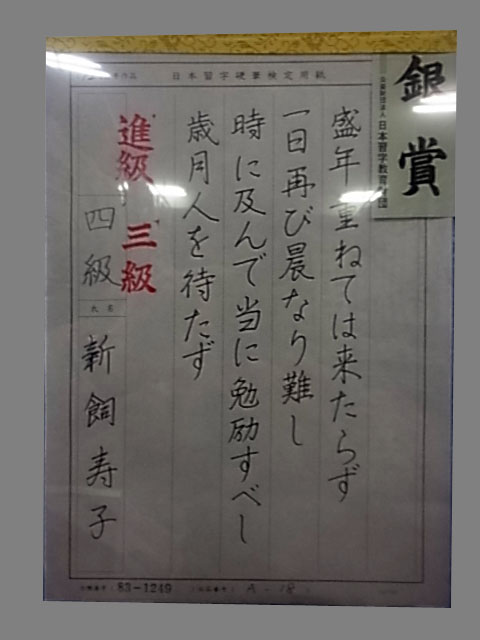 銀賞
公益財団法人 日本習字教育財団
日本習字硬筆検定用紙
盛年重ねては来たらず
一日再び晨なり難し
時に及んで当に勉励すべし
歳月人を待たず
進級 三級
四級
氏名
新飼寿子
83-1249